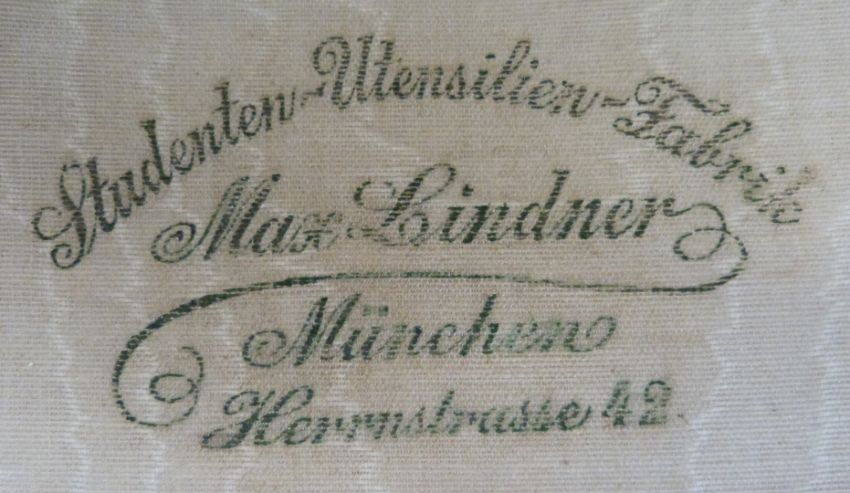 Studenten-Utensilien-Fabrik
Max Lindner
München
Herrnstrasse 42.